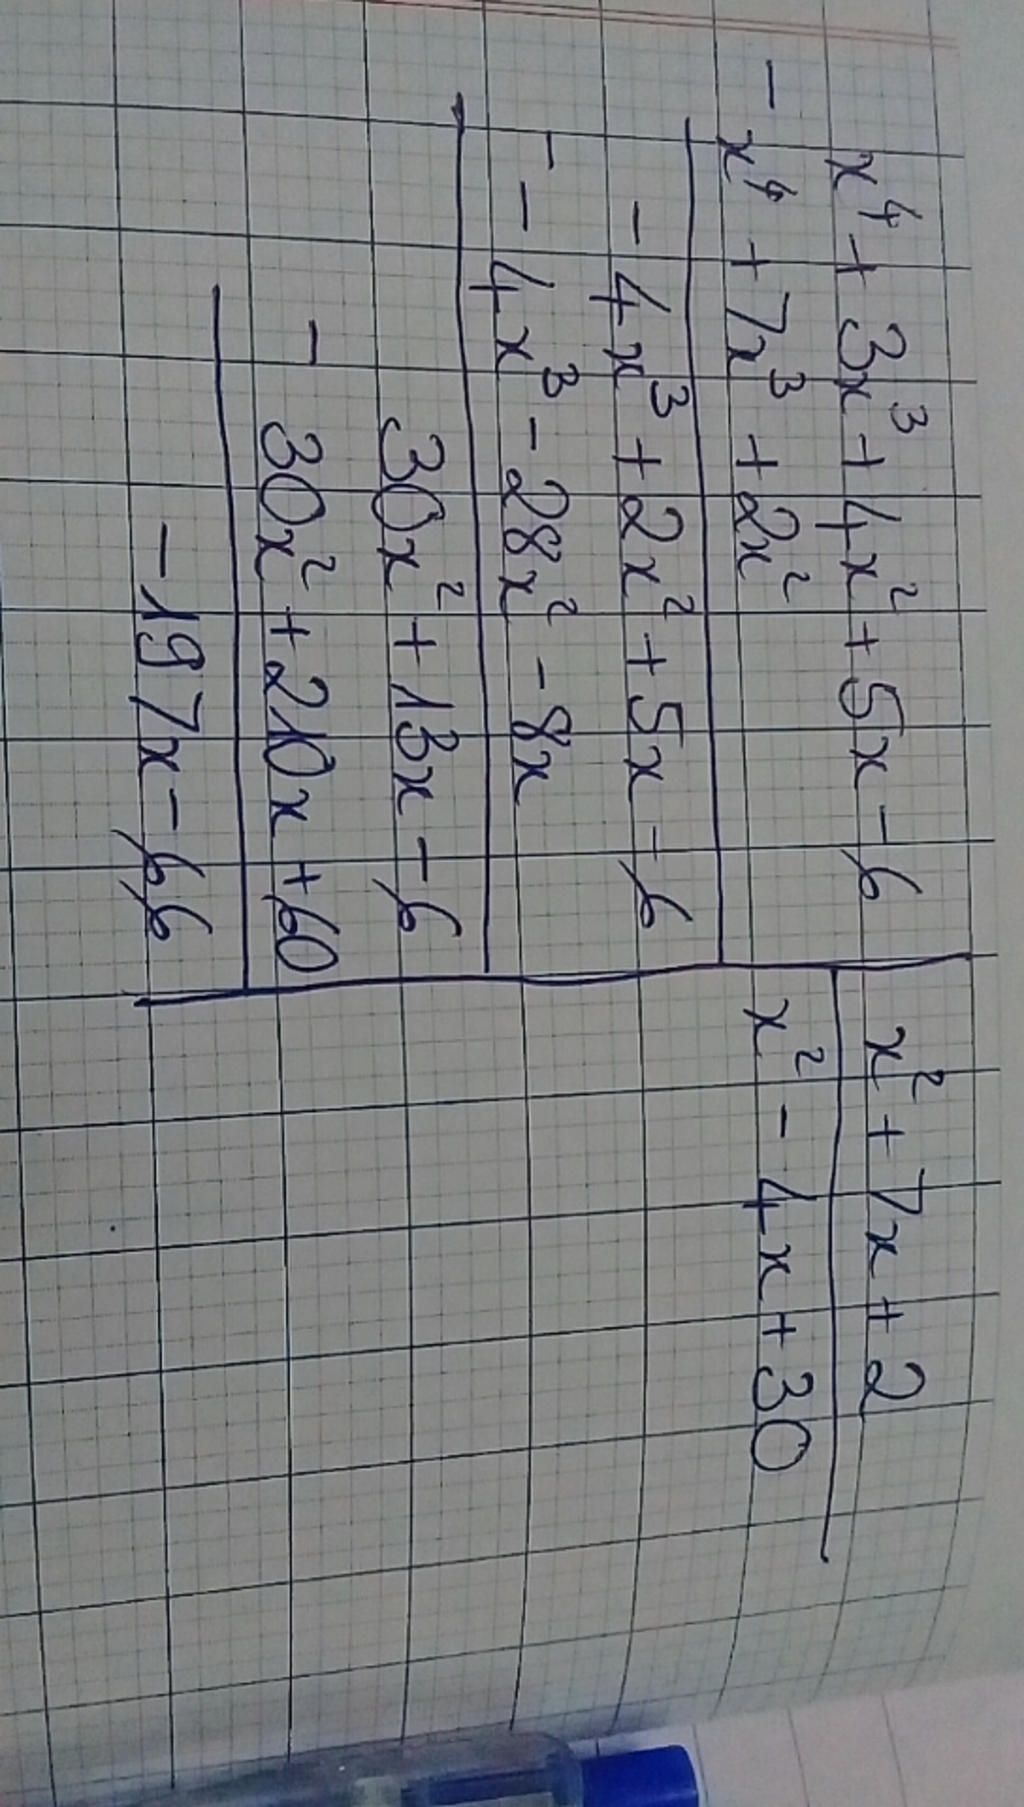 x⁴ + 3x³ + 4x² + 5x - 6 | x² + 7x + 2
- x⁴ + 7x³ + 2x² | x² - 4x + 30
- 4x³ + 2x² + 5x - 6
- - 4x³ - 28x² - 8x
30x² + 13x - 6
- 30x² + 210x + 60
- 197x - 66